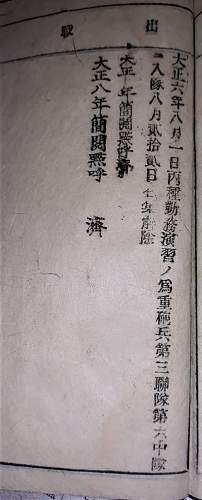 出 戰
大正六年八月一日丙種勤務演習ノ爲重砲兵第三聯隊第六中隊
ニ入隊八月貳拾貳日 解除
大正 年簡閲點呼濟
大正八年簡閲點呼 濟